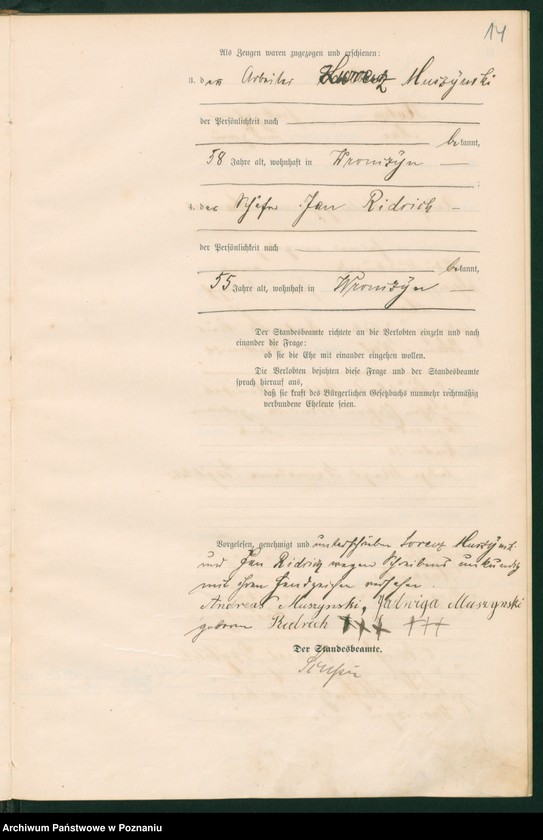 14
Als Zeugen waren zugezogen und erschienen:
3. der Arbeiter Lorenz Muszýnski
der Persönlichkeit nach
bekannt,
58 Jahre alt, wohnhaft in Wronczýn
4. der Schäfer Jan Ridrich
der Persönlichkeit nach
bekannt,
55 Jahre alt, wohnhaft in Wronczýn
Der Standesbeamte richtete an die Verlobten einzeln und nach
einander die Frage:
ob sie die Ehe mit einander eingehen wollen.
Die Verlobten bejahten diese Frage und der Standesbeamte
sprach hierauf aus,
daß sie kraft des Bürgerlichen Gesetzbuchs nunmehr rechtmäßig
verbundene Eheleute seien.
Vorgelesen, genehmigt und unterschrieben Lorenz Muszýnski
und Jan Ridrich wegen Schreibens unkundig
mit ihren Handzeichen versehen.
Andreas Muszynski, Jadwiga Muszynski
geboren Ridrich +++ +++
Der Standesbeamte.
Archiwum Państwowe w Poznaniu